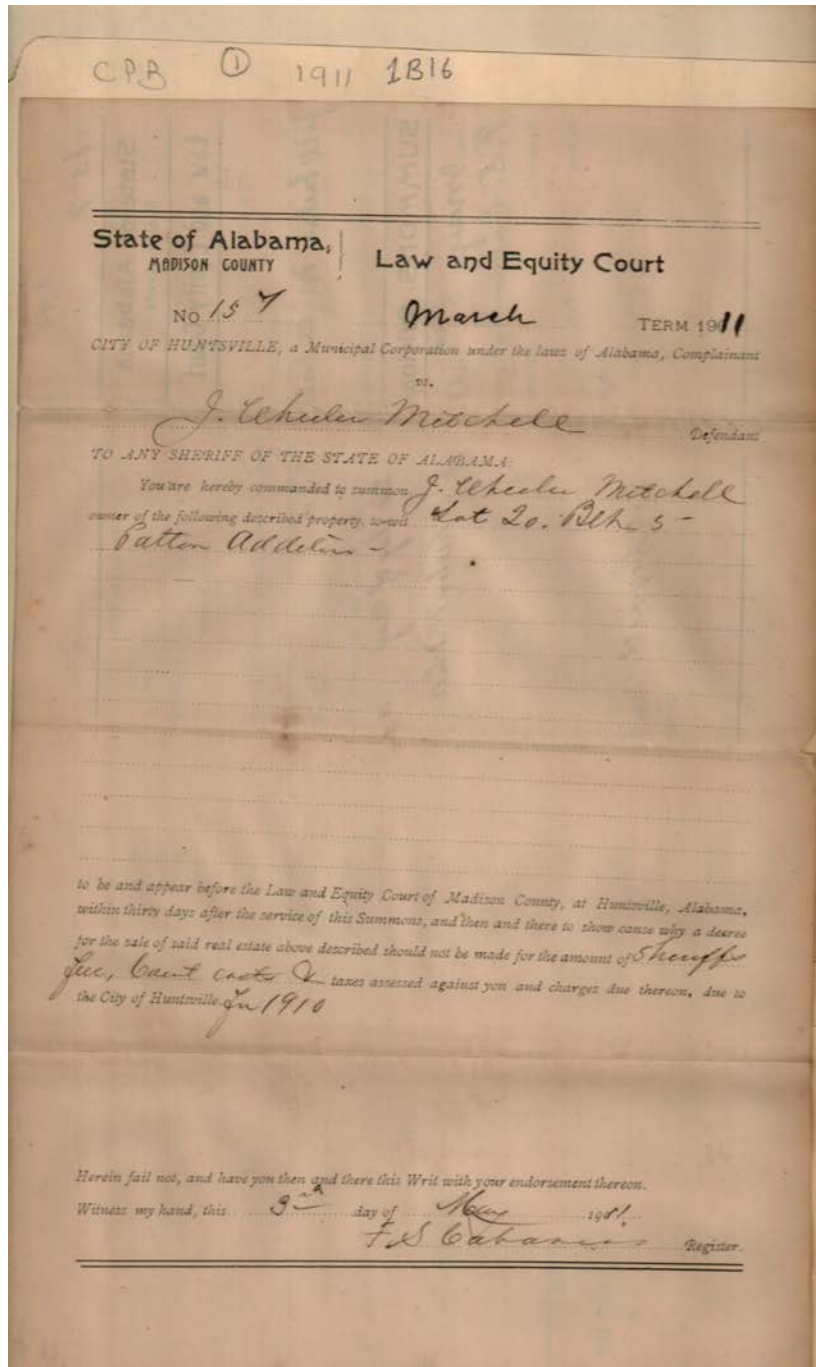 CPB ① 1911 1B16
State of Alabama, Law and Equity Court
MADISON COUNTY
No 157 March TERM 1911
CITY OF HUNTSVILLE, a Municipal Corporation under the laws of Alabama, Complainant
vs.
J. Wheeler Mitchell Defendant
TO ANY SHERIFF OF THE STATE OF ALABAMA:
You are hereby commanded to summon J. Wheeler Mitchell
owner of the following described property, to-wit Lot 20. Blk 5 -
Patton Addition -
to be and appear before the Law and Equity Court of Madison County, at Huntsville, Alabama,
within thirty days after the service of this Summons, and then and there to show cause why a decree
for the sale of said real estate above described should not be made for the amount of Sheriffs
fee, Court costs & taxes assessed against you and charges due thereon, due to
the City of Huntsville. For 1910
Herein fail not, and have you then and there this Writ with your endorsement thereon.
Witness my hand, this 3rd day of May 1911.
F S Cabaniss Register.